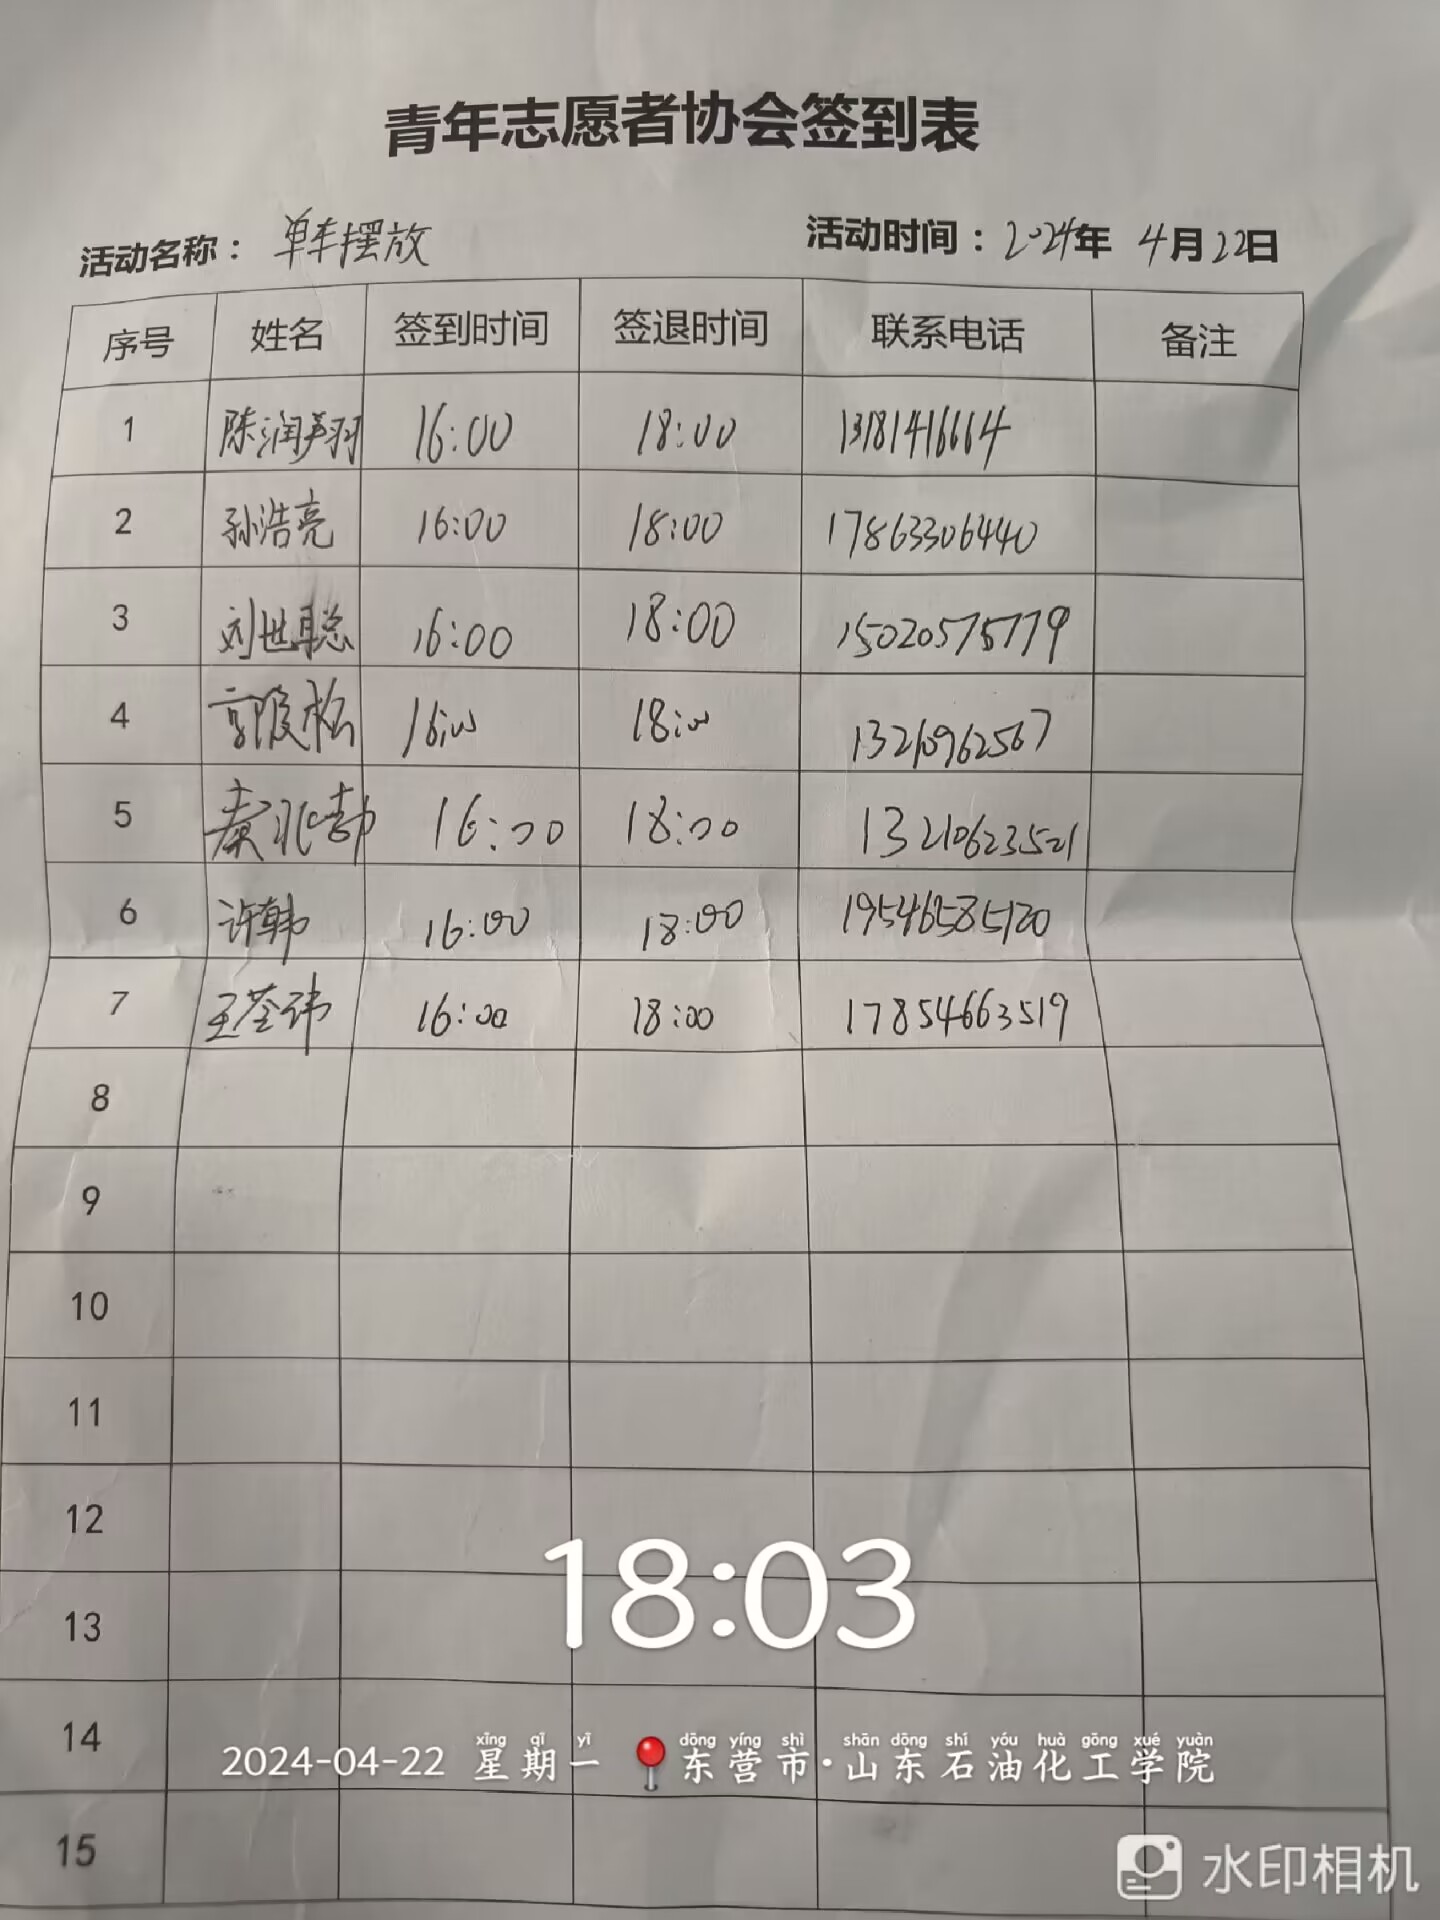 青年志愿者协会签到表
活动名称：单车摆放 活动时间：2024年 4月22日
序号 姓名 签到时间 签退时间 联系电话 备注
1 陈润翔 16:00 18:00 13181416664
2 孙浩亮 16:00 18:00 17863306440
3 刘世聪 16:00 18:00 15020575779
4 16:00 18:00 13210962567
5 秦兆勃 16:00 18:00 13210623521
6 许韩 16:00 18:00 19546585120
7 王荃玮 16:00 18:00 17854663519
8
9
10
11
12
18:03
13
14
xīng qī yī dōng yíng shì shān dōng shí yóu huà gōng xué yuàn
2024-04-22 星期一 东营市·山东石油化工学院
15
水印相机